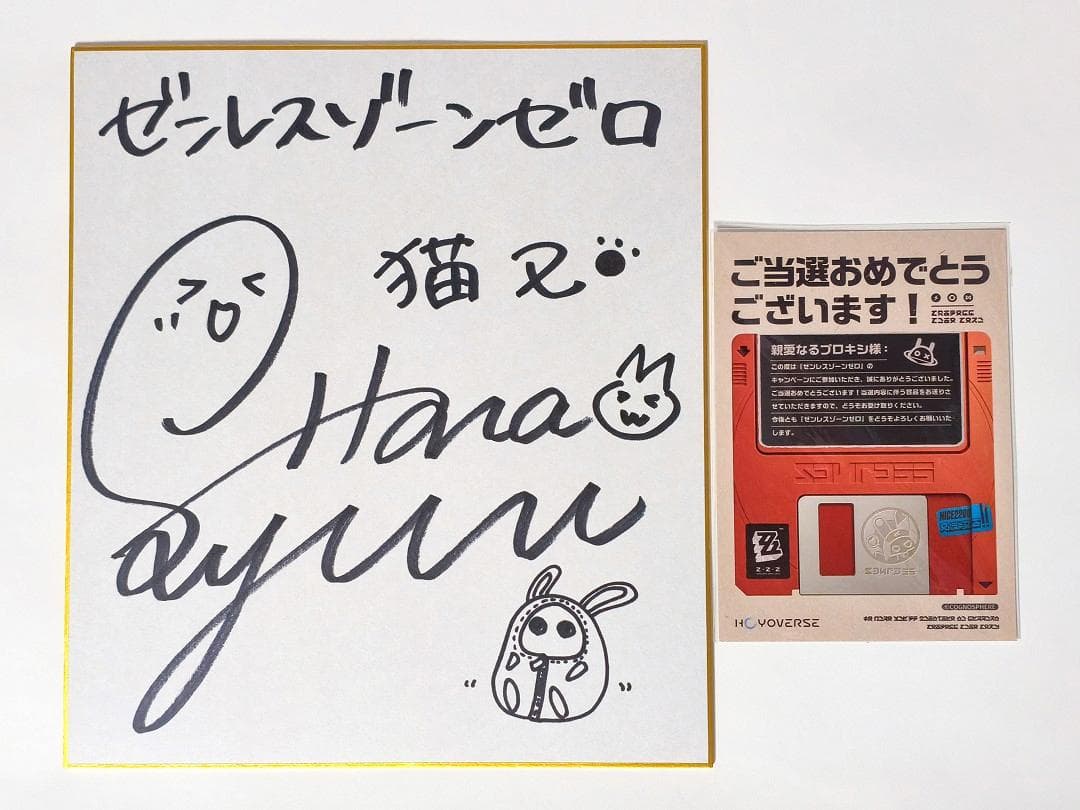 ゼンレスゾーンゼロ
猫又
Hara
Sayuri
ご当選おめでとう
ございます！
親愛なるプロキシ様：
この度は「ゼンレスゾーンゼロ」の
キャンペーンにご参加いただき、誠にありがとうございました。
ご当選おめでとうございます！当選内容に伴う賞品をお送りさ
せていただきますので、どうぞお受け取りください。
今後とも「ゼンレスゾーンゼロ」をどうぞよろしくお願いいた
します。
NICE2200
Z·Z·Z
©COGNOSPHERE
HOYOVERSE